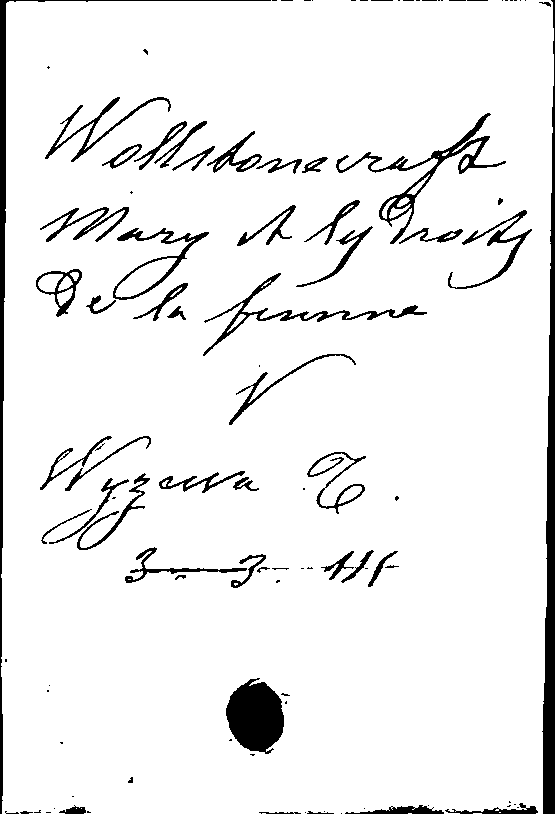 Wollstonecraft
Mary et les Droits
De la femme
V
Wyzewa T.
3. 3.